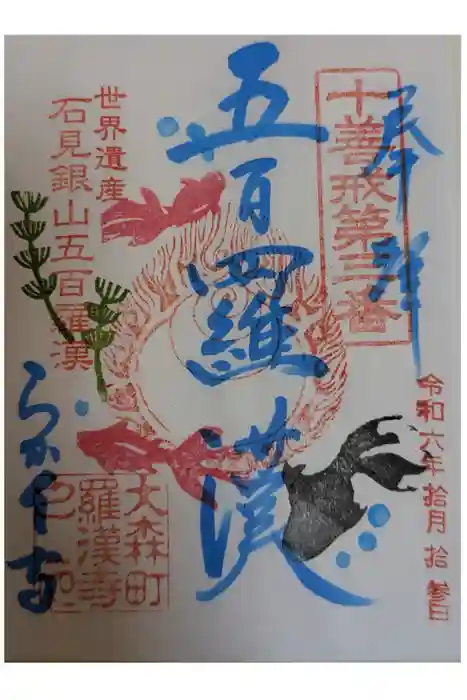 奉拝
十善戒第三番
五百羅漢
世界遺産
石見銀山五百羅漢
らかん寺
大森町
羅漢寺
令和六年拾月拾参日